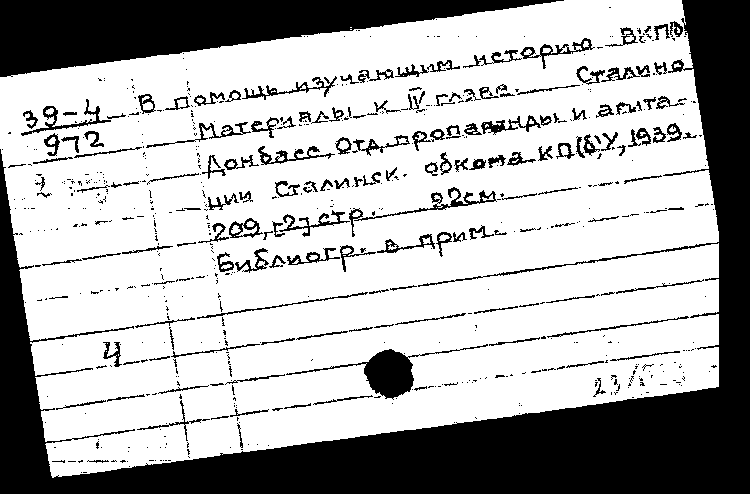 39-4
972
2
В помощь изучающим историю ВКП(б)
Материалы к IV главе. Сталино
Донбасс, Отд. пропаганды и агита-
ции Сталинск. обкома КП(б)У, 1939.
209, [2] стр. 22см.
Библиогр. в прим.
4